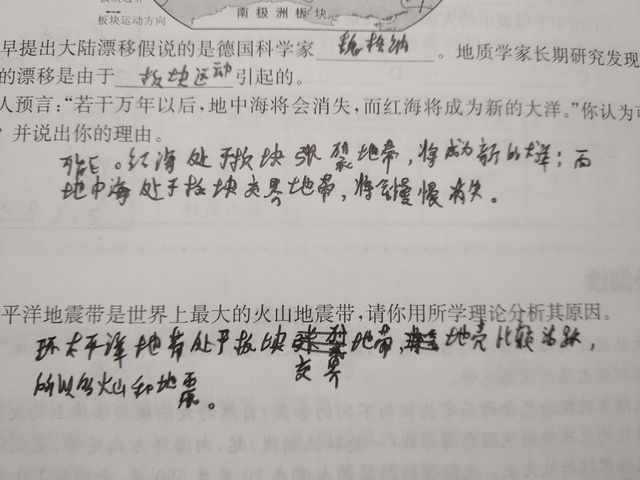 板块运动方向
南极洲板块
早提出大陆漂移假说的是德国科学家 魏格纳 。地质学家长期研究发现
的漂移是由于 板块运动 引起的。
人预言:“若干万年以后,地中海将会消失,而红海将成为新的大洋。”你认为可
?并说出你的理由。
可能。红海处于板块张裂地带,将成为新的大洋;而
地中海处于板块交界地带,将会慢慢消失。
平洋地震带是世界上最大的火山地震带,请你用所学理论分析其原因。
环太平洋地带处于板块交界地带,地壳比较活跃,
所以多火山和地震。